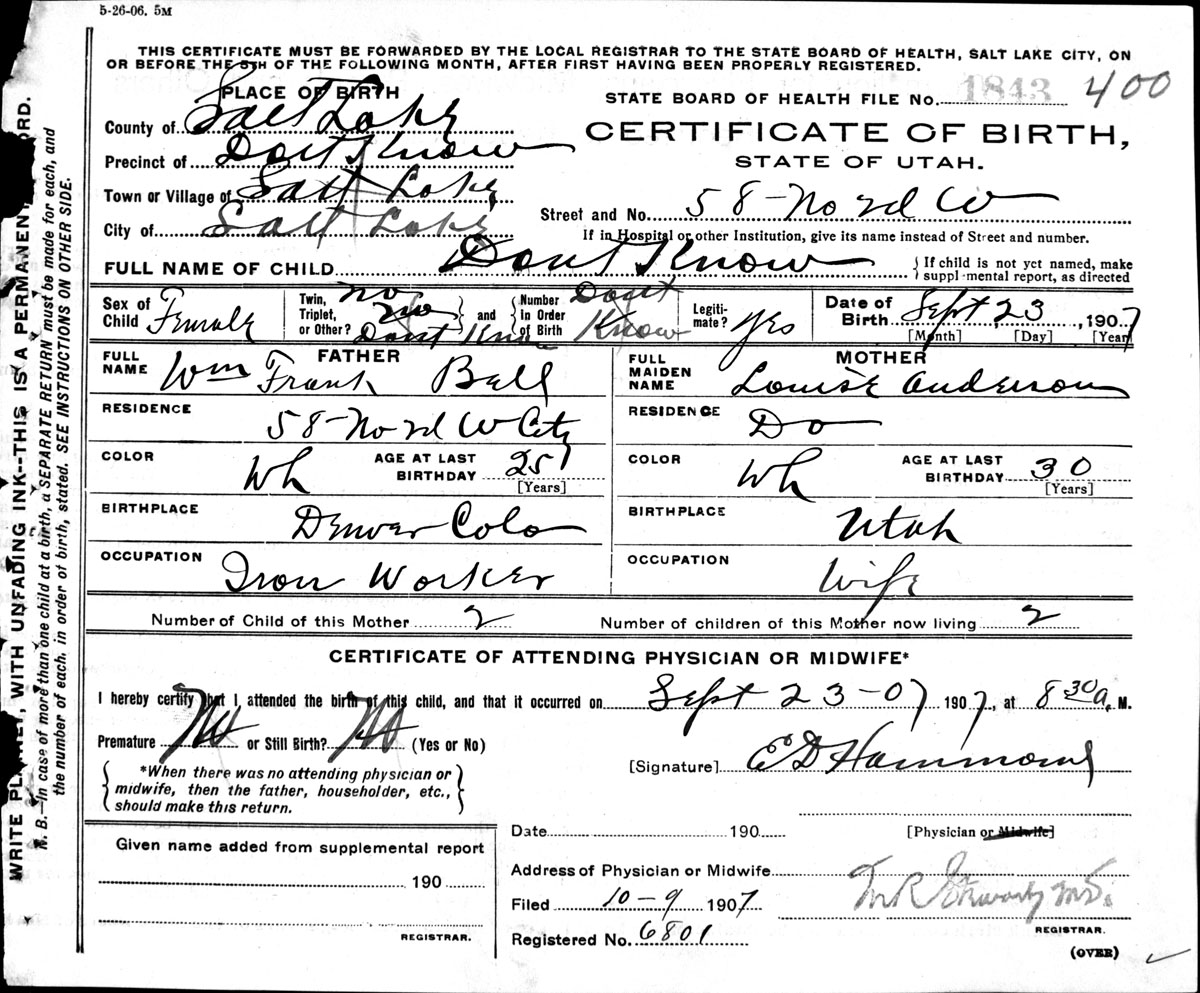 5-26-06. 5M
THIS CERTIFICATE MUST BE FORWARDED BY THE LOCAL REGISTRAR TO THE STATE BOARD OF HEALTH, SALT LAKE CITY, ON
OR BEFORE THE 5TH OF THE FOLLOWING MONTH, AFTER FIRST HAVING BEEN PROPERLY REGISTERED.
PLACE OF BIRTH
STATE BOARD OF HEALTH FILE NO. 1843 400
County of Salt Lake
CERTIFICATE OF BIRTH,
Precinct of Dont Know
STATE OF UTAH.
Town or Village of Salt Lake
Street and No. 58-No 2d W
City of Salt Lake
If in Hospital or other Institution, give its name instead of Street and number.
FULL NAME OF CHILD Dont Know
If child is not yet named, make
supplemental report, as directed
Sex of Child Female
Twin, Triplet, or Other? no no Dont Know
and
Number in Order of Birth Dont Know
Legitimate? yes
Date of Birth Sept 23, 1907
[Month] [Day] [Year]
FATHER
FULL NAME Wm Frank Bell
RESIDENCE 58-No 2d W City
COLOR Wh AGE AT LAST BIRTHDAY 25
[Years]
BIRTHPLACE Denver Colo
OCCUPATION Iron Worker
MOTHER
FULL MAIDEN NAME Louise Anderson
RESIDENCE Do
COLOR Wh AGE AT LAST BIRTHDAY 30
[Years]
BIRTHPLACE Utah
OCCUPATION Wife
Number of Child of this Mother 2 Number of children of this Mother now living 2
CERTIFICATE OF ATTENDING PHYSICIAN OR MIDWIFE*
I hereby certify that I attended the birth of this child, and that it occurred on Sept 23-07 1907, at 8 30 a. M.
Premature No or Still Birth? No (Yes or No)
[Signature] E D Hammond
*When there was no attending physician or
midwife, then the father, householder, etc.,
should make this return.
Date 190
[Physician or Midwife]
Given name added from supplemental report
190
REGISTRAR.
Address of Physician or Midwife
Filed 10-9 1907
M.D.
REGISTRAR.
Registered No. 6801
(OVER)
WRITE PLAINLY, WITH UNFADING INK--THIS IS A PERMANENT RECORD.
N. B.--In case of more than one child at a birth, a SEPARATE RETURN must be made for each, and
the number of each, in order of birth, stated. SEE INSTRUCTIONS ON OTHER SIDE.